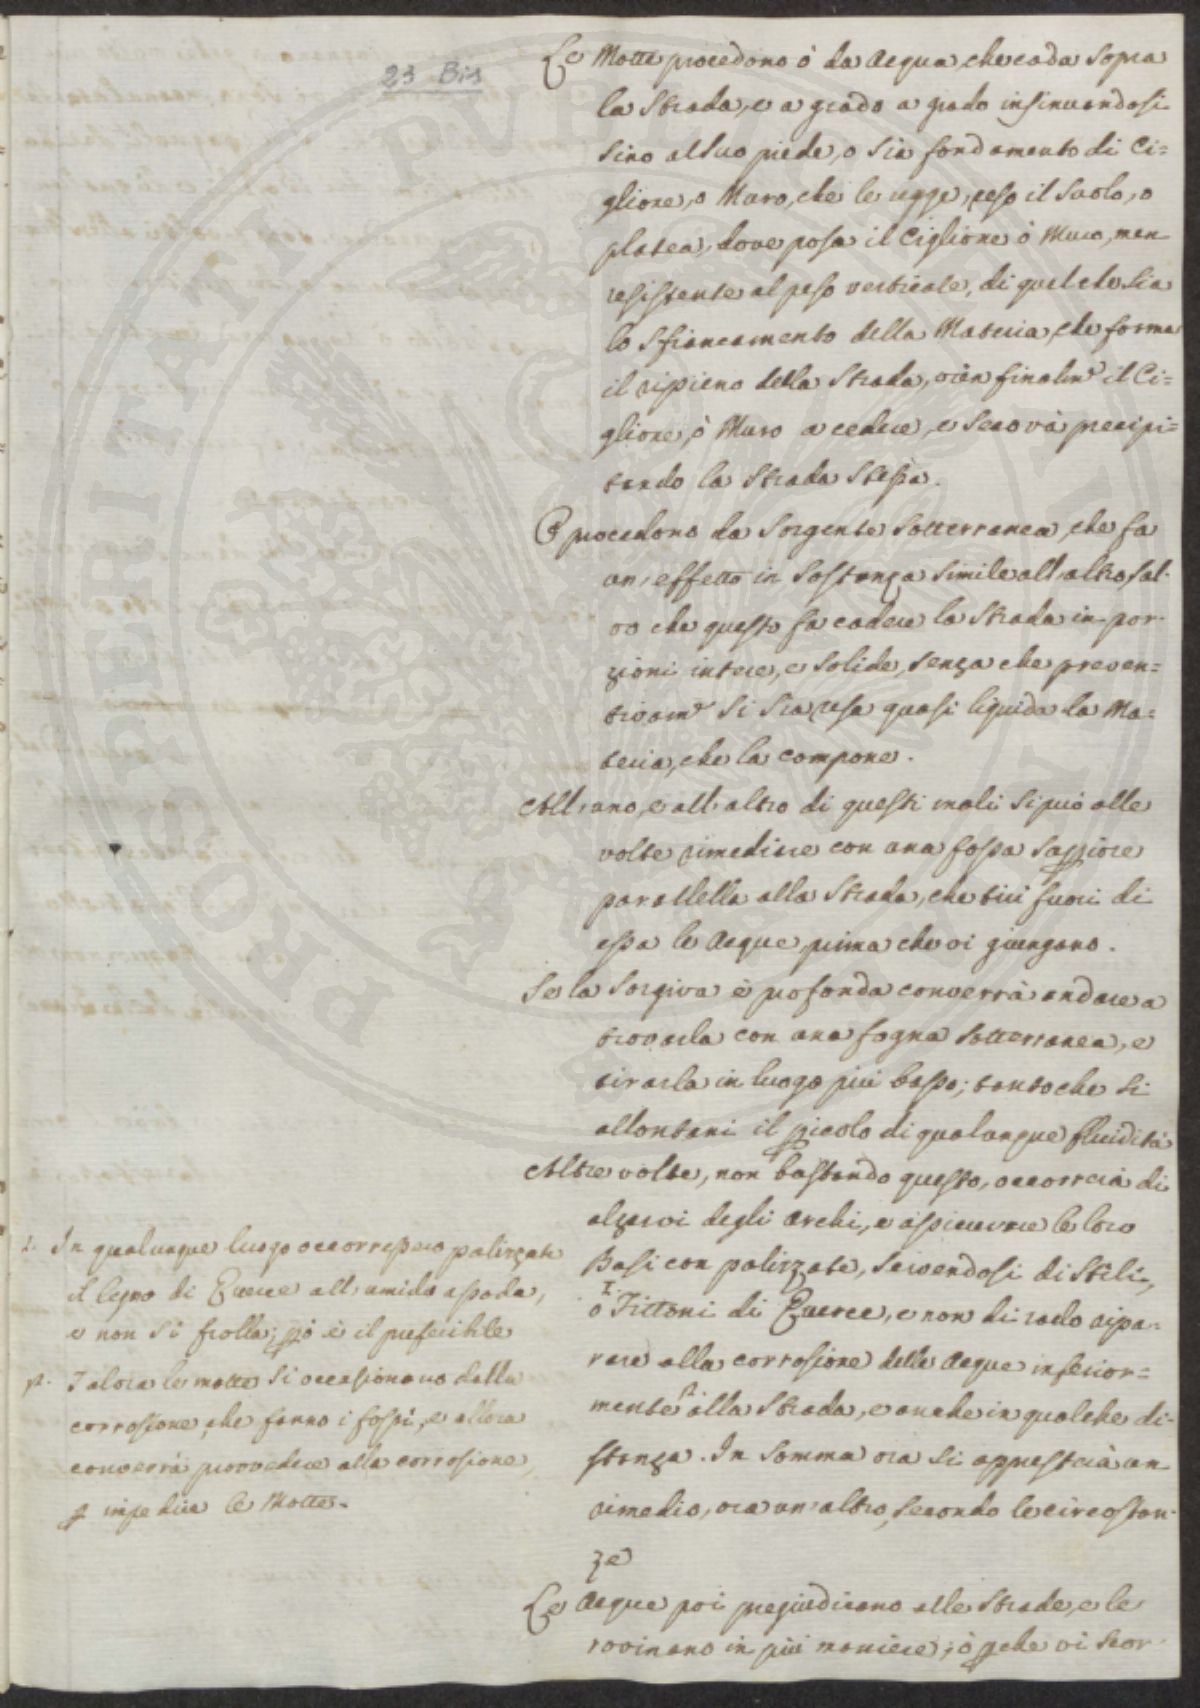 23 Bis
Le Motte procedono ò da Acqua, che cada sopra
la Strada, e a grado a grado insinuandosi
sino al suo piede, o sia fondamento di Ci=
glione, o Muro, che le regge, reso il suolo, o
platea, dove posa il Ciglione ò Muro, men
resistente al peso verticale, di quel che sia
lo sfiancamento della Materia, che forma
il ripieno della Strada, vièn finalm.e il Ci=
glione, ò Muro a cedere, e se ne và precipi=
tando la Strada stessa.
O procedono da Sorgente sotterranea, che fa
un' effetto in sostanza simile all' altro sal-
vo che questo fa cadere la Strada in por-
zioni intere, e solide, senza che preven=
tivam.e si sia resa quasi liquida la Ma=
teria, che la compone.
All' uno, e all' altro di questi mali si può alle
volte rimediare con una fossa
parallella alla Strada, che tiri fuori di
essa le Acque prima che vi giungano.
Se la Sorgiva è profonda converrà andare a
trovarla con una fogna sotterranea, e
tirarla in luogo più basso; tanto che si
allontani il pericolo di qualunque fluidità
Altre volte, non bastando questo, occorrerà di
alzarvi degli Archi, e assicurare le loro
Basi con palizzate, servendosi di Stili,
o Fittoni di Querce, e non di rado ripa-
rare alla corrosione delle Acque inferior=
mente alla Strada, e anche in qualche di-
stanza. In somma ora si appresterà un
rimedio, ora un' altro, secondo le circostan-
ze
Le Acque poi pregiudicano alle Strade, e le
rovinano in più maniere; ò perche vi scor-
1. In qualunque luogo occorressero palizzate
il legno di Querce all' umido assoda,
e non si frolla; però è il preferibile
2. Talora le motte si occasionano dalla
corrosione, che fanno i fossi, e allora
converrà provvedere alla corrosione,
per impedire le Motte.